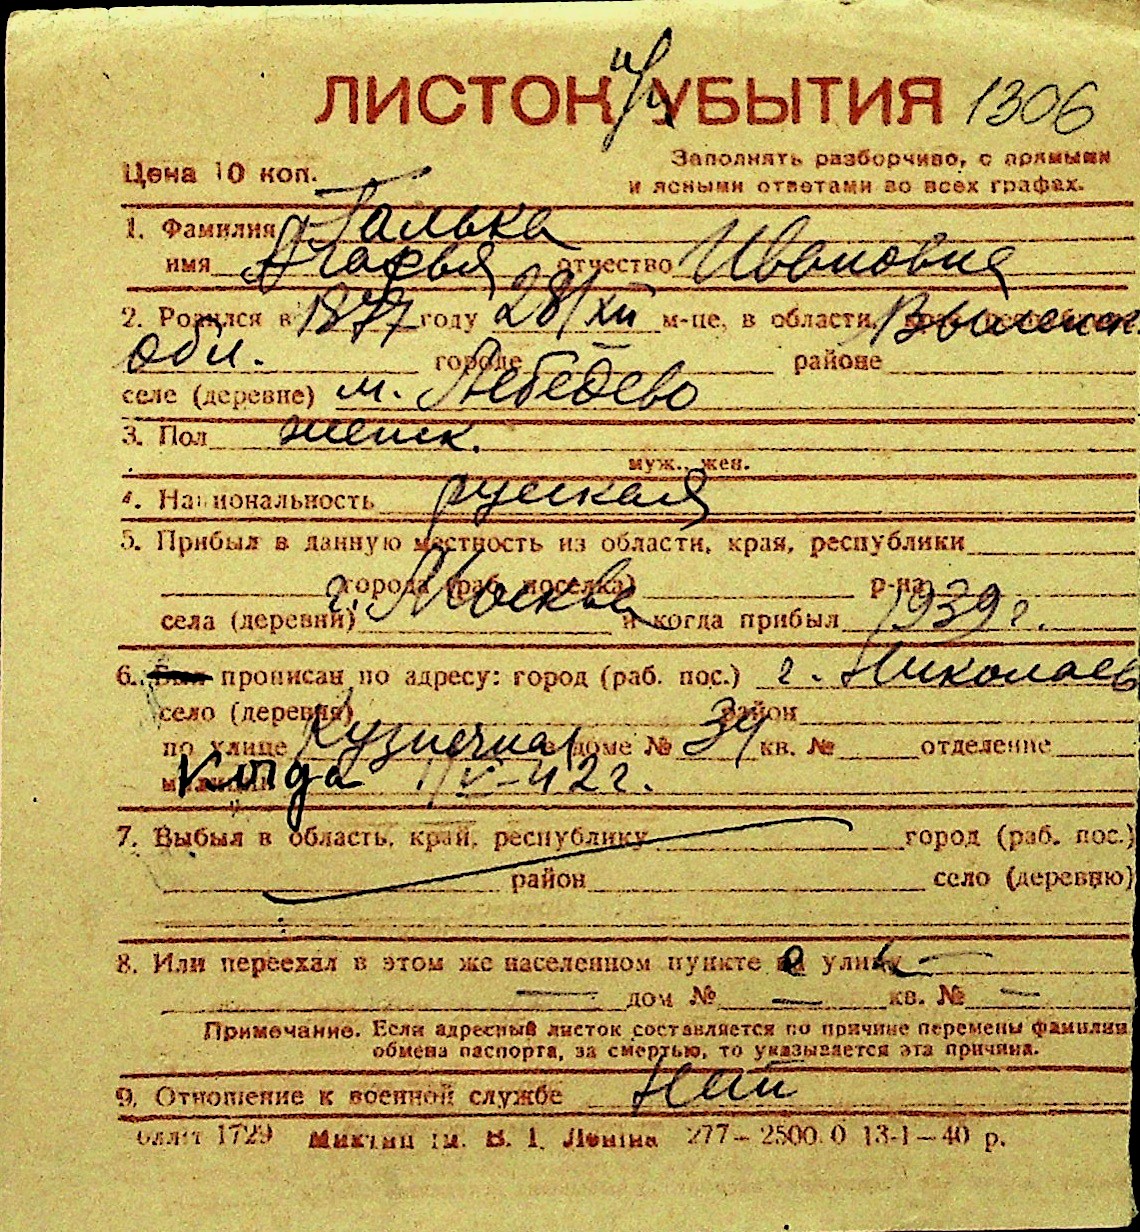 ЛИСТОК УБЫТИЯ 1306
Цена 10 коп.
Заполнять разборчиво, с прямыми
и ясными ответами во всех графах.
1. Фамилия Галька
имя Агафья отчество Ивановна
2. Родился в 1877 году 28/XII м-це, в области, Виленск.
обл. городе районе
селе (деревне) м. Лебедево
3. Пол женск.
муж., жен.
4. Национальность русская
5. Прибыл в данную местность из области, края, республики
города (раб. поселка) р-на
села (деревни) г. Москва и когда прибыл 1939 г.
6. Был прописан по адресу: город (раб. пос.) г. Николаев
село (деревня) район
по улице Кузнечная в доме № 34 кв. № отделение
милиции Когда
7. Выбыл в область, край, республику город (раб. пос.)
район село (деревню)
8. Или переехал в этом же населенном пункте на улицу —
— дом № — кв. № —
Примечание. Если адресный листок составляется по причине перемены фамилии,
обмена паспорта, за смертью, то указывается эта причина.
9. Отношение к военной службе Нет
Обллит 1729 Миктип ім. В. І. Леніна 277—2500.0 13-I—40 р.